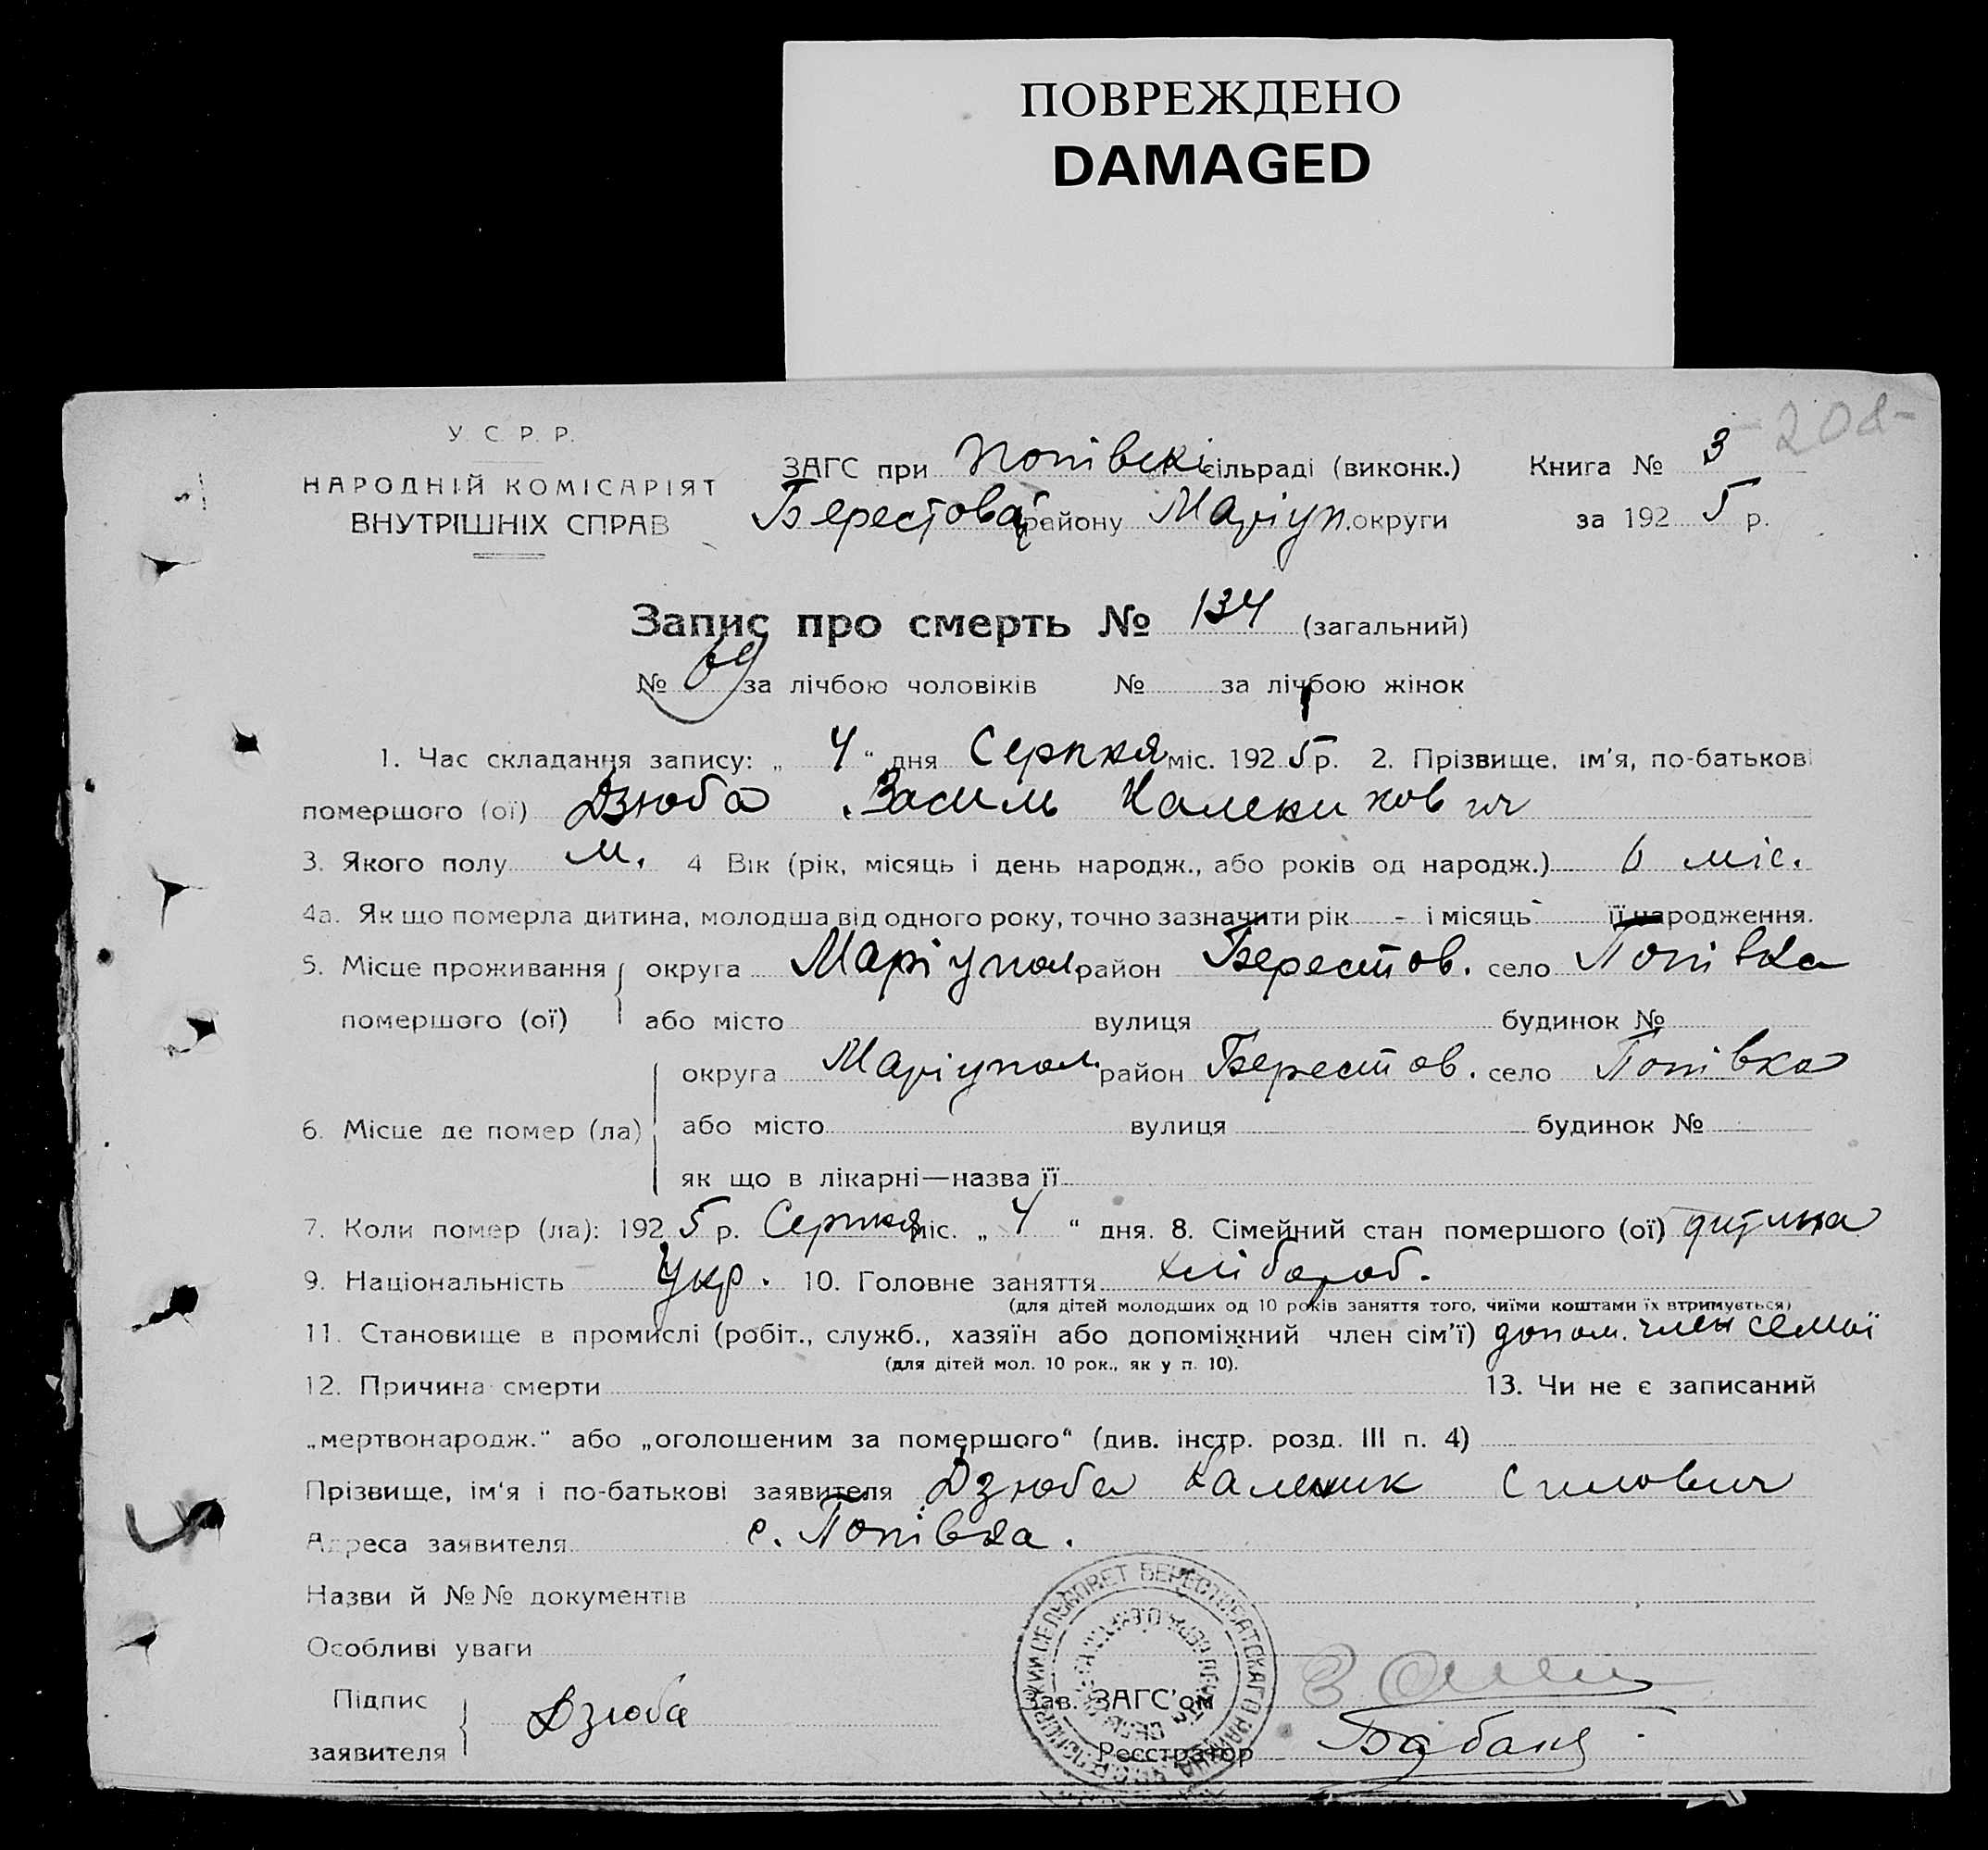 ПОВРЕЖДЕНО
DAMAGED
208
У. С. Р. Р.
НАРОДНІЙ КОМІСАРІЯТ
ВНУТРІШНІХ СПРАВ
ЗАГС при Попівскі сільраді (виконк.) Книга № 3
Берестова району Маріуп. округи за 1925 р.
Запис про смерть № 134 (загальний)
№ 69 за лічбою чоловіків № за лічбою жінок
1. Час складання запису: „ 4 “ дня Серпня міс. 1925 р. 2. Прізвище, ім'я, по-батькові
помершого (ої) Дзюба Василь Каленикович
3. Якого полу м. 4 Вік (рік, місяць і день народж., або років од народж.) 6 міс.
4а. Як що померла дитина, молодша від одного року, точно зазначити рік - і місяць - її народження.
5. Місце проживання округа Маріупол район Берестов. село Попівка
помершого (ої) або місто вулиця будинок №
округа Маріупол. район Берестов. село Попівка
6. Місце де помер (ла) або місто вулиця будинок №
як що в лікарні—назва її
7. Коли помер (ла): 1925 р. Серпня міс. „ 4 “ дня. 8. Сімейний стан помершого (ої) дитина
9. Національність Укр. 10. Головне заняття хлібороб.
(для дітей молодших од 10 років заняття того, чиїми коштами їх втримується)
11. Становище в промислі (робіт., служб., хазяїн або допоміжний член сім'ї) допом. член семьї
(для дітей мол. 10 рок., як у п. 10).
12. Причина смерти 13. Чи не є записаний
„мертвонародж.“ або „оголошеним за помершого“ (див. інстр. розд. III п. 4)
Прізвище, ім'я і по-батькові заявителя Дзюба Каленик Силович
Адреса заявителя с. Попівка.
Назви й №№ документів
Особливі уваги
Підпис
заявителя Дзюба
Зав. ЗАГС'ом
Реєстратор
СЕЛЬСОВЕТ БЕРЕСТОВАТСКАГО РАЙОНА